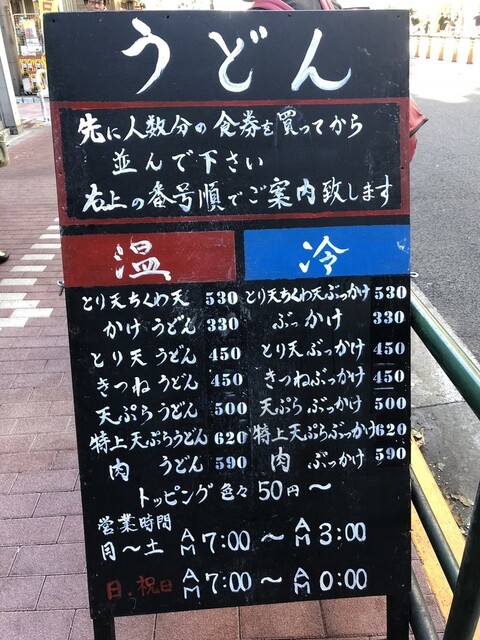 うどん
先に人数分の食券を買ってから
並んで下さい
右上の番号順でご案内致します
温
とり天ちくわ天 530
かけうどん 330
とり天うどん 450
きつねうどん 450
天ぷらうどん 500
特上天ぷらうどん 620
肉うどん 590
冷
とり天ちくわ天ぶっかけ 530
ぶっかけ 330
とり天ぶっかけ 450
きつねぶっかけ 450
天ぷらぶっかけ 500
特上天ぷらぶっかけ 620
肉ぶっかけ 590
トッピング色々50円〜
営業時間
月〜土 AM7:00〜AM3:00
日、祝日 AM7:00〜AM0:00